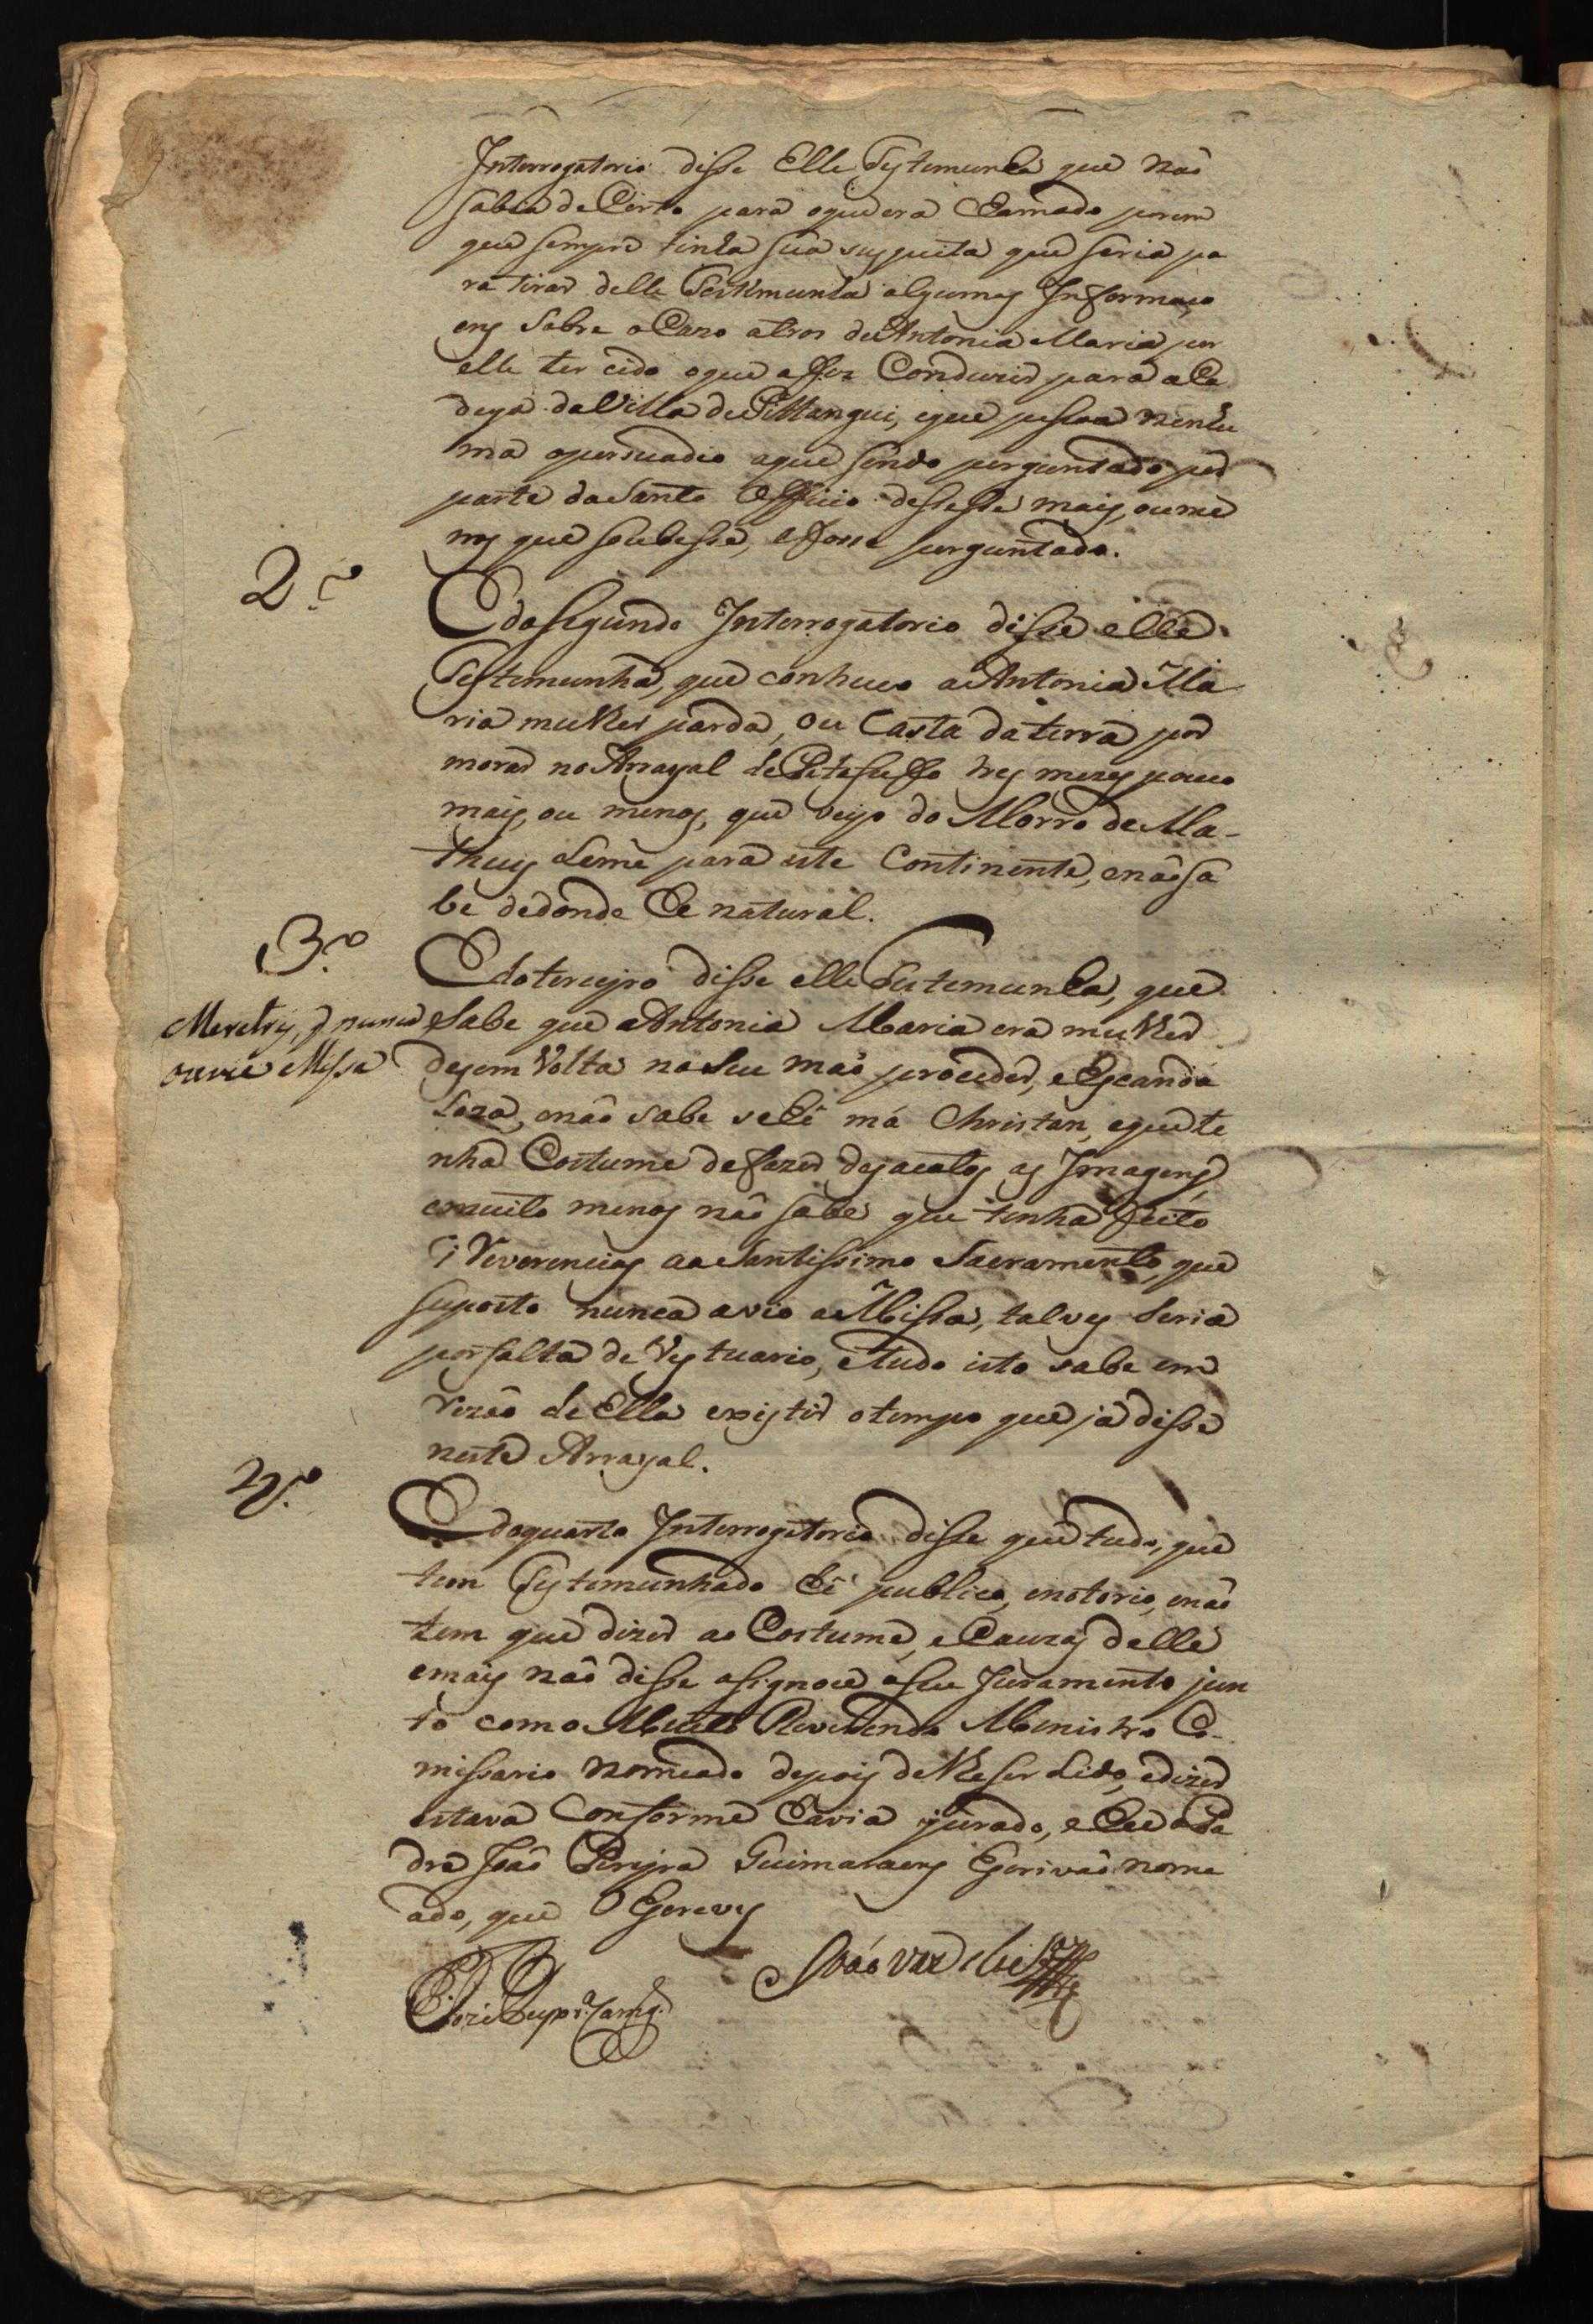 Interrogatorio disse Elle Testemunha que não
sabia de Certo para oque era Chamado porem
que sempre tinha sua suspeita que seria pa
ra tirar delle Testemunha algumas Informaço
ens sobre o Cazo atros de Antonia Maria por
elle ter cido oque a fes Conduzir para a Ca
deya da Villa de Pittangui, eque pessoa nenhu
ma opersuadio aque sendo perguntado por
parte do Santo Officio dissesse mais, oume
nos que soubesse, e fosse perguntado.
2.º
E do segundo Interrogatorio disse elle
Testemunha, que conheceo a Antonia Ma
ria mulher parda, ou Casta da terra por
morar no Arrayal de tres mezes pouco
mais, ou menos, que veyo do Morro de Ma-
theus Leme para este Continente, enão sa
be dedonde he natural.
3.º
E doterceyro disse elle Testemunha, que
Meretris, q nunca
ouvio Missa
Sabe que a Antonia Maria era mulher
dezem Volta no seu mao proceder, e Escanda
loza, enão sabe se hé má Christan, eque te
nha Costume de fazer dezacatos as Imagens,
emuito menos não sabe que tenha feito
iReverencias ao Santissimo Sacramento, que
suposto nunca a vio a Missa, talves seria
por falta de Vestuario, etudo isto sabe em
rezão de Ella existir otempo que já disse
neste Arrayal.
4.º
E do quarto Interrogatorio disse que tudo, que
tem Testemunhado hé publico, enotorio, enão
tem que dizer ao Costume, e Couzas delle
emais não disse asignou o seu Juramento jun
to como Muito Reverendo Menistro Co-
missario nomeado depois de lhe ser Lido, edizer
estava Conforme havia jurado, e Eu o Pa
dre João Pereyra Guimaraens Escrivão nome
ado, que o Escrevy
João Vaz